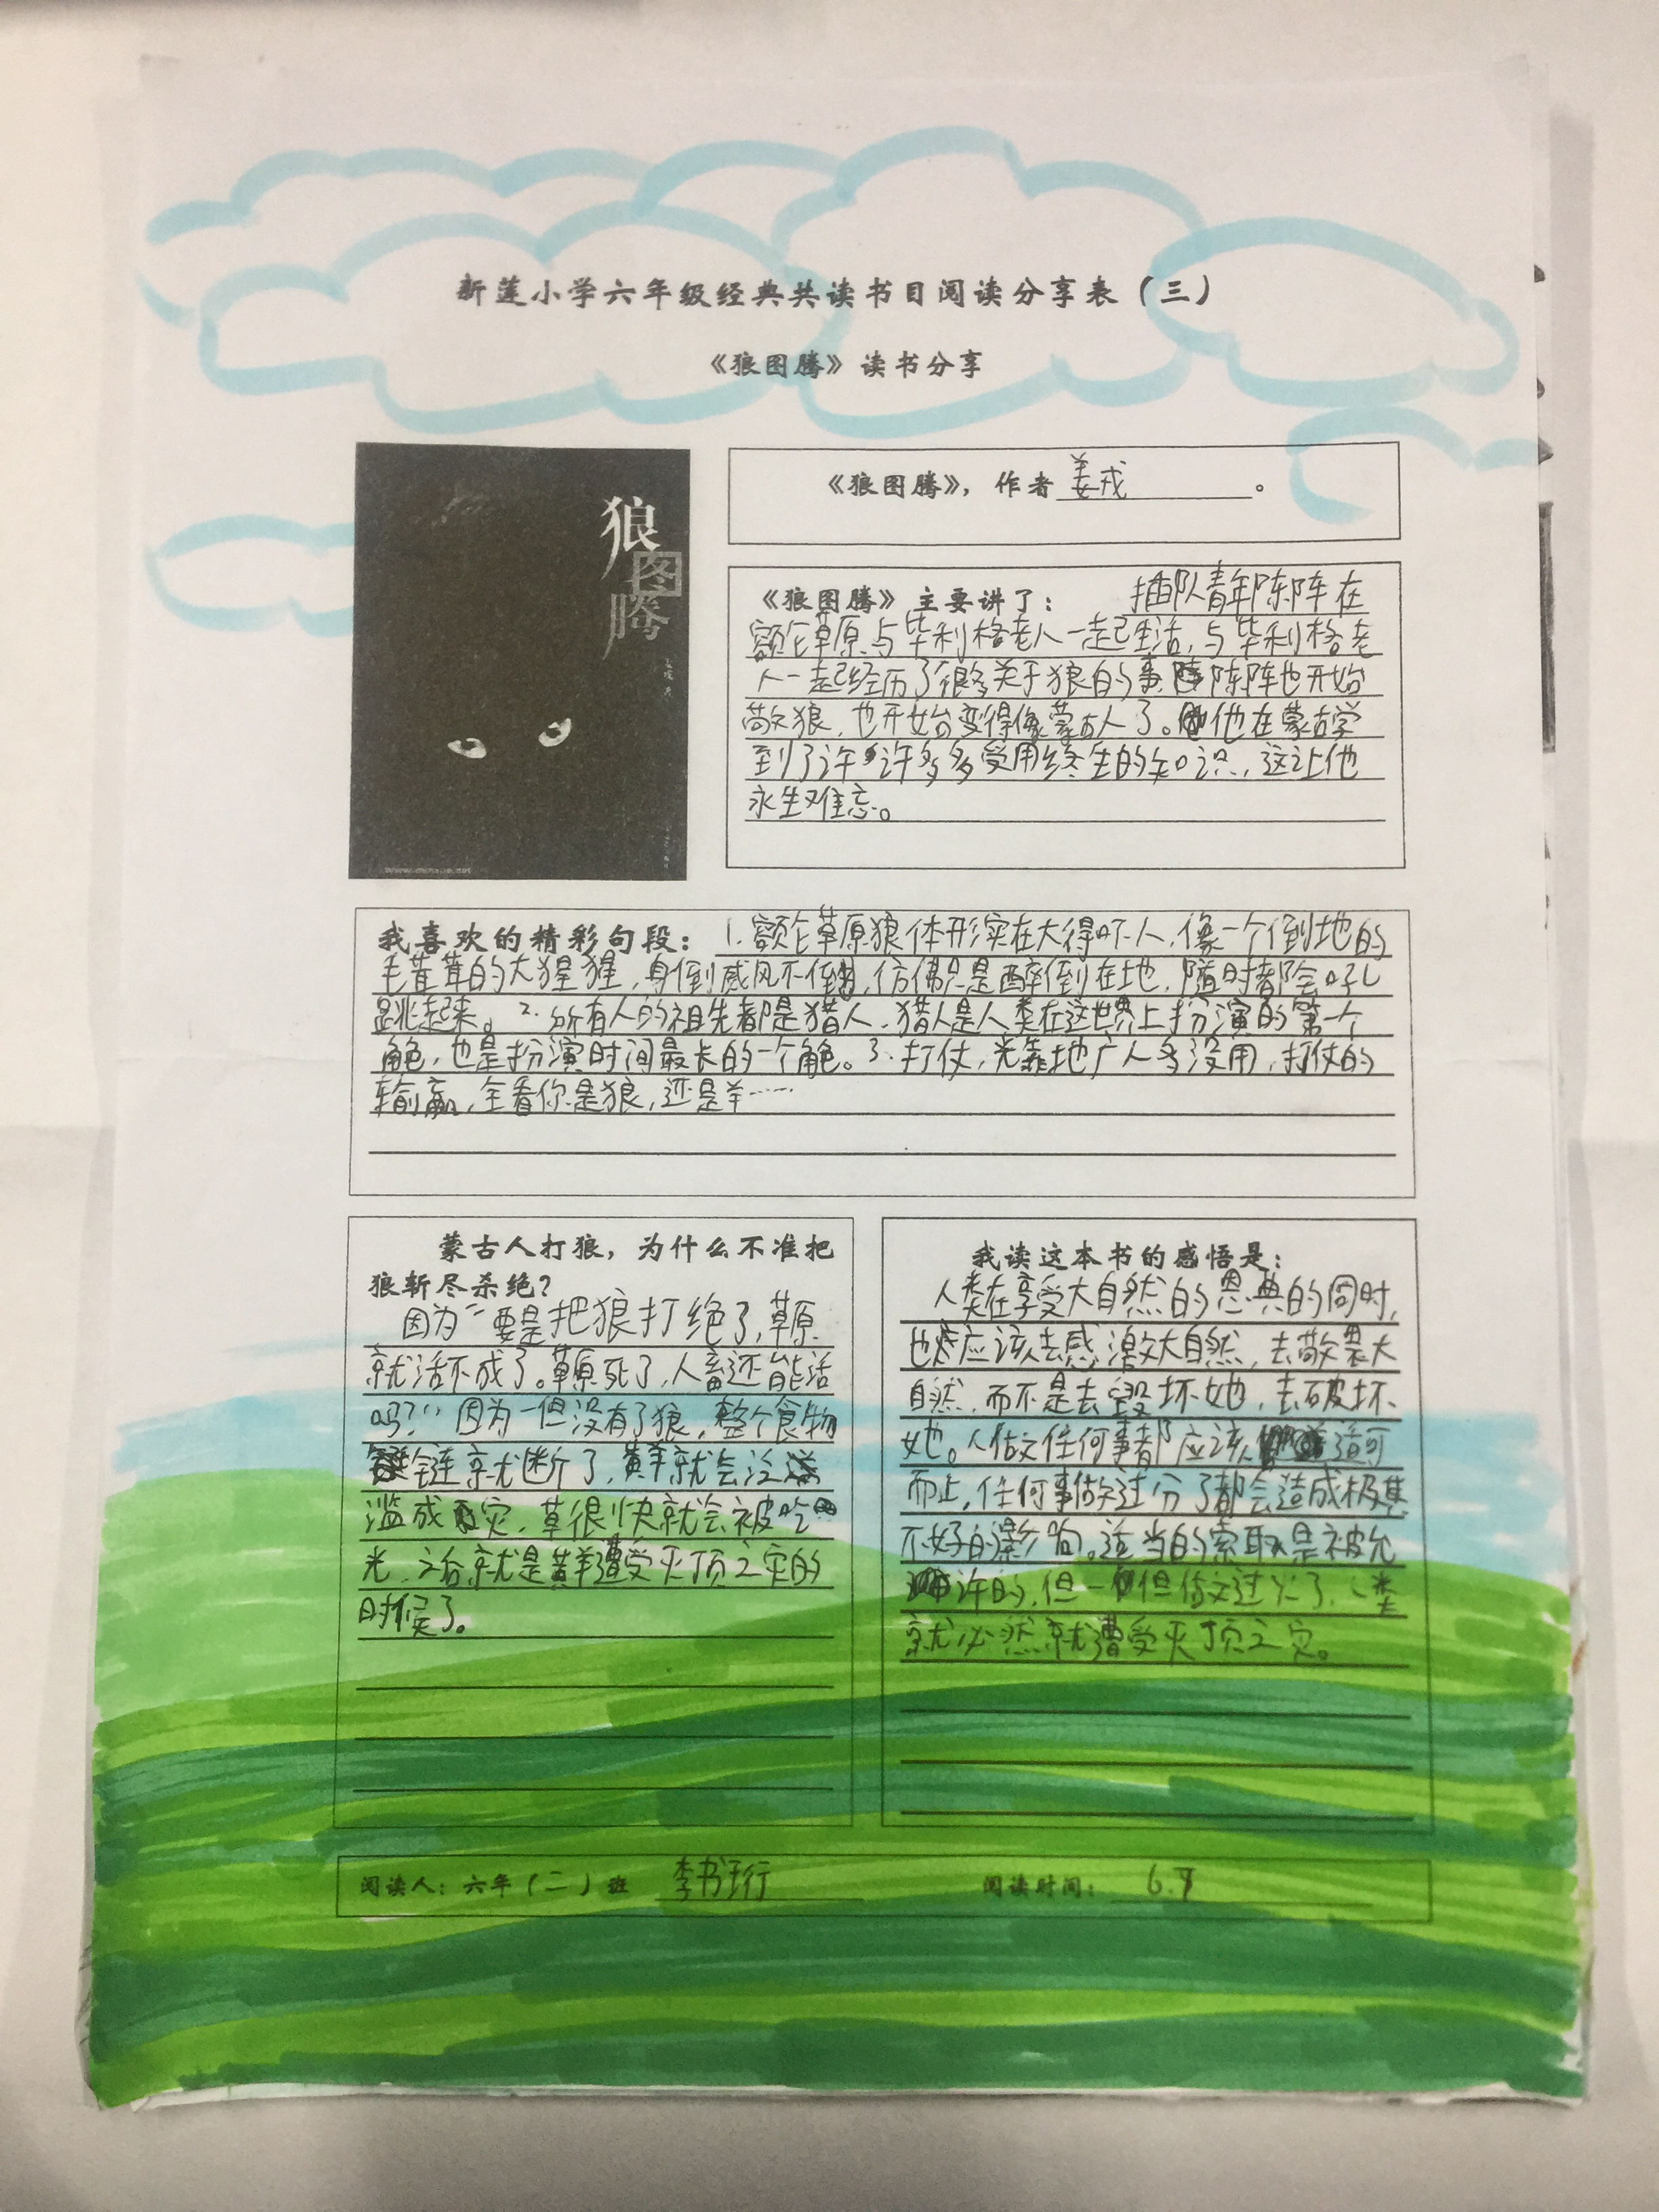 新莲小学六年级经典共读书目阅读分享表（三）
《狼图腾》读书分享
狼
图
腾
《狼图腾》，作者姜戎。
《狼图腾》主要讲了：插队青年陈阵在
额仑草原与毕利格老人一起生活，与毕利格老
人一起经历了很多关于狼的事，陈阵也开始
敬狼，也开始变得像蒙古人了。他在蒙古学
到了许许多多受用终生的知识，这让他
永生难忘。
我喜欢的精彩句段：1.额仑草原狼体形实在大得吓人，像一个倒地的
毛茸茸的大猩猩，身倒威风不倒，仿佛只是醉倒在地，随时都会吼
跳起来。2.所有人的祖先都是猎人，猎人是人类在这世界上扮演的第一个
角色，也是扮演时间最长的一个角色。3.打仗，光靠地广人多没用，打仗的
输赢，全看你是狼，还是羊……
蒙古人打狼，为什么不准把
狼斩尽杀绝？
因为“要是把狼打绝了，草原
就活不成了。草原死了，人畜还能活
吗？”因为一但没有了狼，整个食物
链就断了，黄羊就会泛
滥成灾，草很快就会被吃
光，之后就是黄羊遭受灭顶之灾的
时候了。
我读这本书的感悟是：
人类在享受大自然的恩典的同时，
也应该去感激大自然，去敬畏大
自然，而不是去毁坏她，去破坏
她。人做任何事都应该适可
而止，任何事做过分了都会造成极其
不好的影响。适当的索取是被允
许的，但一但做过火了，人类
就必然就遭受灭顶之灾。
阅读人：六年（二）班 李书珩 阅读时间：6.7